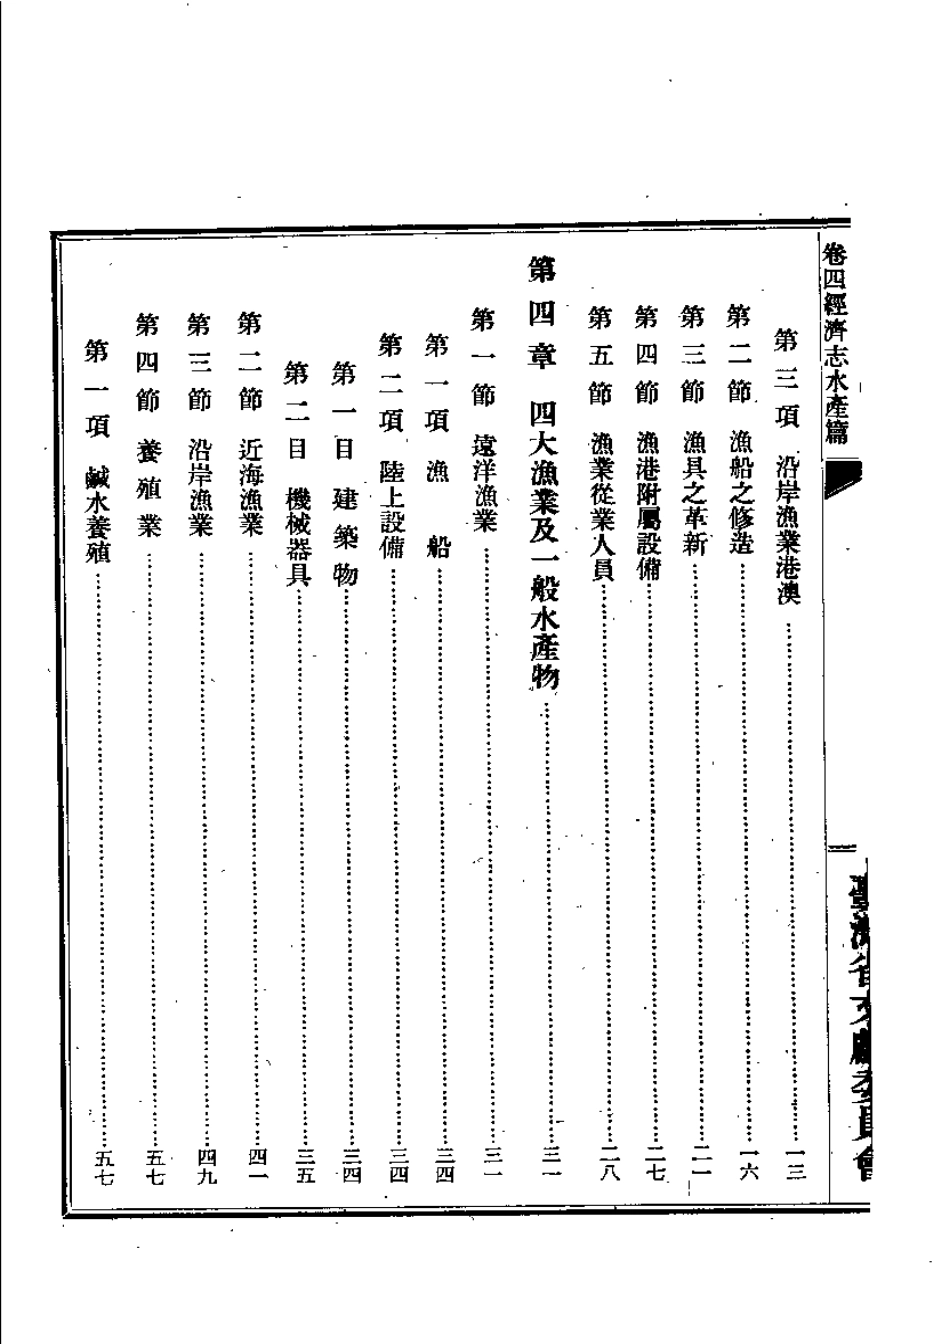 卷四經濟志水產篇
二
臺灣省文獻委員會
第三項　沿岸漁業港澳……一三
第二節　漁船之修造……一六
第三節　漁具之革新……二一
第四節　漁港附屬設備……二七
第五節　漁業從業人員……二八
第四章　四大漁業及一般水產物……三一
第一節　遠洋漁業……三一
第一項　漁　船……三四
第二項　陸上設備……三四
第一目　建築物……三四
第二目　機械器具……三五
第二節　近海漁業……四一
第三節　沿岸漁業……四九
第四節　養殖業……五七
第一項　鹹水養殖……五七